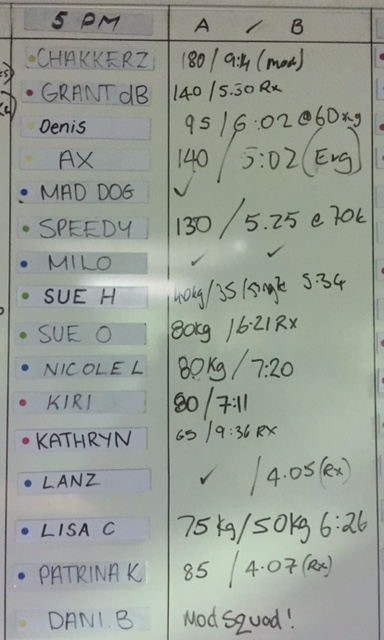 5 PM A / B
CHAKKERZ 180 / 9:14 (mod)
GRANT dB 140 / 5.30 Rx
Denis 95 / 6:02 @60kg
AX 140 / 5:02 (Erg)
MAD DOG ✓
SPEEDY 130 / 5.25 @ 70k
MILO ✓ ✓
SUE H 40kg / 35 / single 5:34
SUE O 80kg / 6:21 Rx
NICOLE L 80Kg / 7:20
KIRI 80 / 7:11
KATHRYN 65 / 9:36 RX
LANZ ✓ / 4.05 (Rx)
LISA C 75 kg / 50kg 6:26
PATRINA K 85 / 4.07 (Rx)
DANI. B Mod Squad!